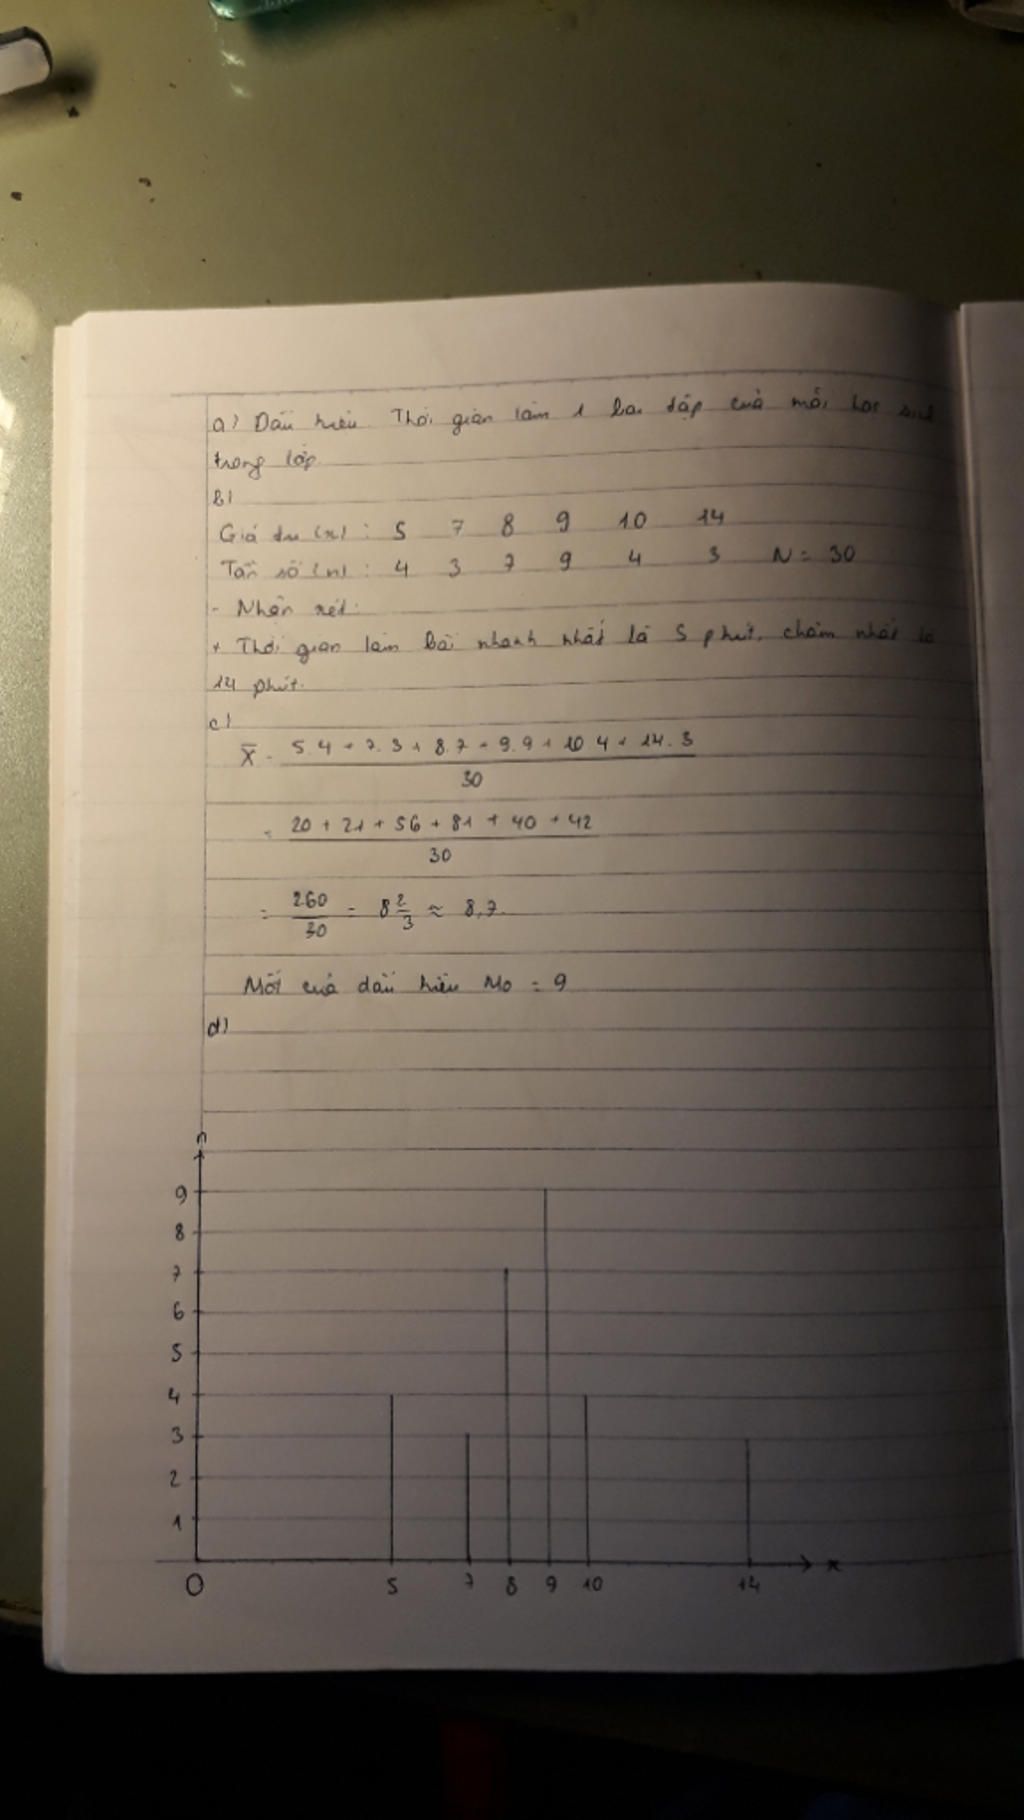 a) Dấu hiệu: Thời gian làm 1 bài tập của mỗi học sinh
trong lớp.
b)
Giá trị (x) : 5 7 8 9 10 14
Tần số (n) : 4 3 7 9 4 3 N = 30
- Nhận xét:
+ Thời gian làm bài nhanh nhất là 5 phút, chậm nhất là
14 phút.
c)
X̄ = (5.4 + 7.3 + 8.7 + 9.9 + 10.4 + 14.3)
30
= 20 + 21 + 56 + 81 + 40 + 42
30
= 260/30 = 8 2/3 ≈ 8,7.
Mốt của dấu hiệu Mo = 9
d)
n
9
8
7
6
5
4
3
2
1
O 5 7 8 9 10 14 x